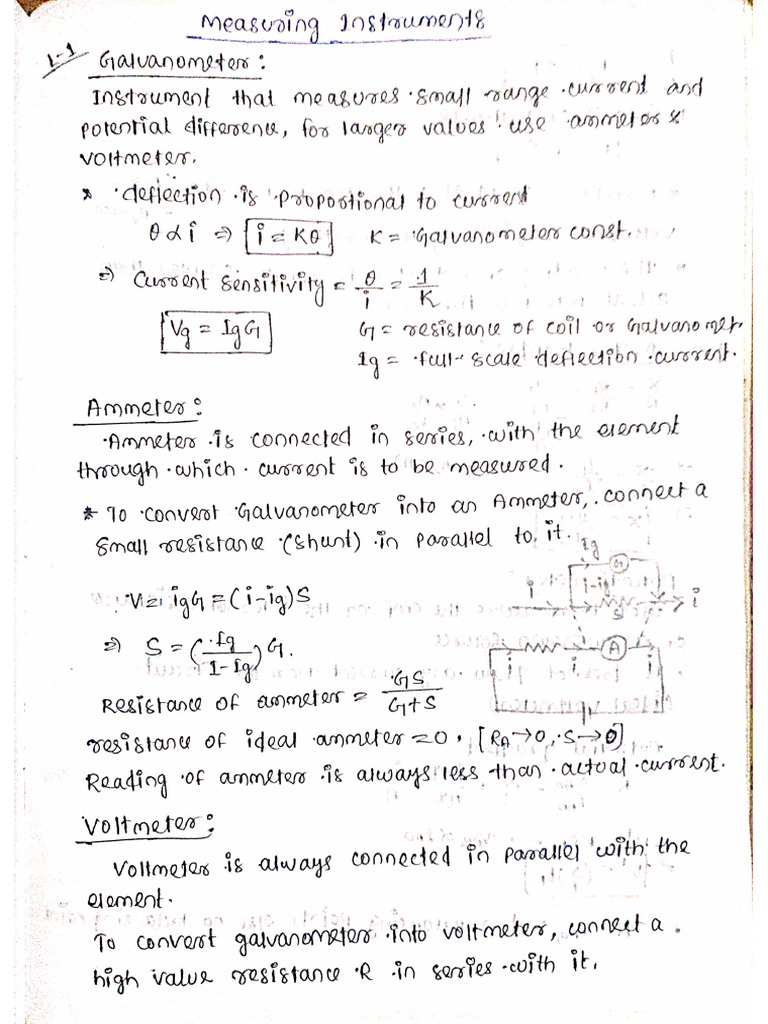 Measuring Instruments
L-1
Galvanometer:
Instrument that measures small range current and
potential difference, for larger values use ammeter &
voltmeter.
* deflection is proportional to current
θ ∝ i ⇒ i = Kθ K = Galvanometer const.
⇒ Current sensitivity = θ/i = 1/K
Vg = IgG G = resistance of coil or Galvanomet.
Ig = full-scale deflection current.
Ammeter:
Ammeter is connected in series, with the element
through which current is to be measured.
* To convert Galvanometer into an Ammeter, connect a
small resistance (shunt) in parallel to it.
Ig
G
i i-ig i
S
V= igG = (i-ig)S
⇒ S = (Ig/I-Ig)G.
A
i i i
Resistance of ammeter = GS/G+S
resistance of ideal ammeter = 0. [RA→0, S→0]
Reading of ammeter is always less than actual current.
Voltmeter:
Voltmeter is always connected in parallel with the
element.
To convert galvanometer into voltmeter, connect a
high value resistance R in series with it.